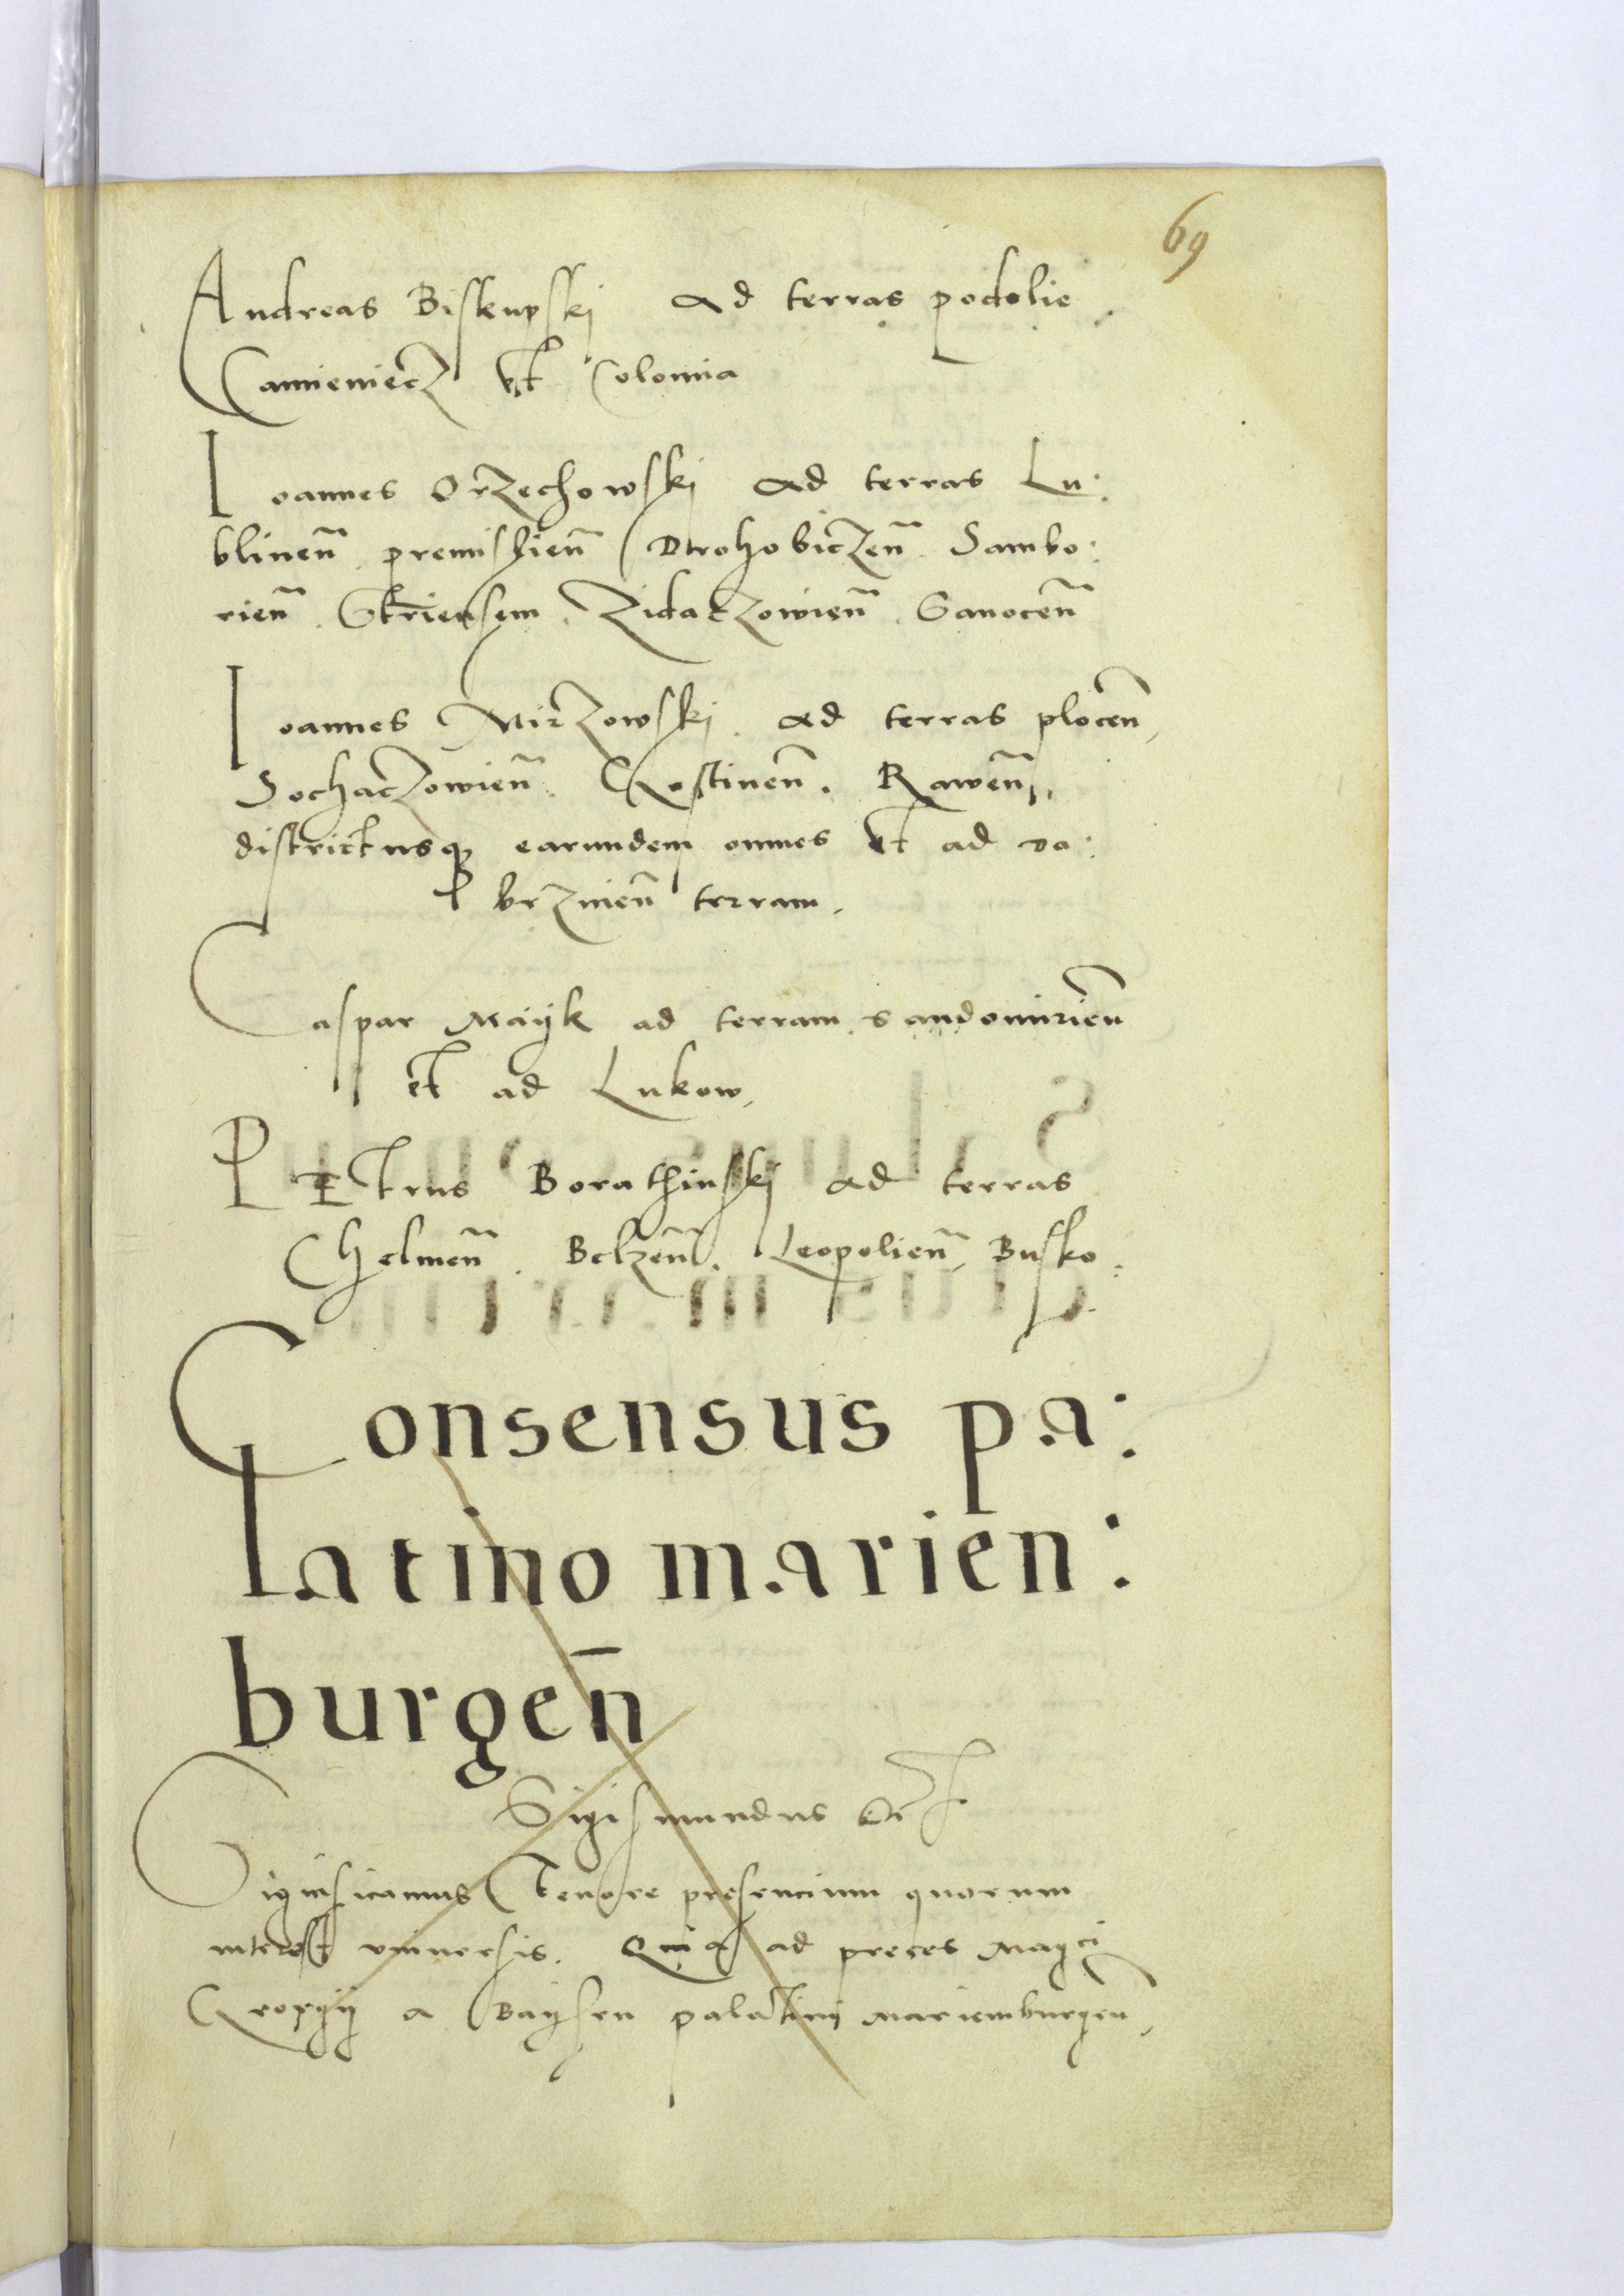 69
Andreas Biskupskj ad terras podolie
Camieniecz et Colomia
Ioannes Orzechowskj ad terras Lu:
blinen̄ premislien̄ Drohobiczen̄ Sambo:
rien̄ Striensem Zidaczowien̄ Sanocen̄
Ioannes Mirzowskj ad terras plocen̄
Sochaczowien̄ Gostinen̄. Rawen̄,
districtusq; earundem omnes et ad do:
brzinien̄ terram.
Caspar Mayk ad terram sandomirien̄
et ad Lukow,
PEtrus Borathinskj ad terras
Chelmen̄. Belzen̄. Leopolien̄ Busko:
Consensus pa:
latino marien:
burgen̄
Sigismundus etc
Significamus tenore presencium quorum
interest vniuersis. Quia ad preces Magci
Georgij a Baysen palatinj mariemburgen̄,